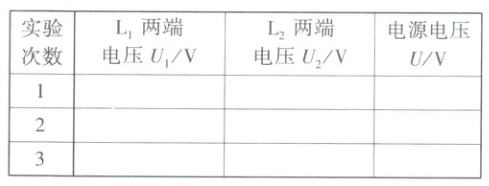 实验次数 L₁ 两端电压 U₁/V L₂ 两端电压 U₂/V 电源电压 U/V
1
2
3